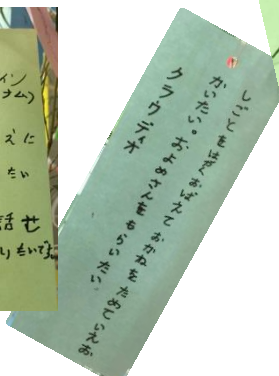 しごとをはやくおぼえておかねをためていえお
かいたい。およめさんをもらいたい
クラウディオ
イン
ナム)
えに
たい
話せ
たいです